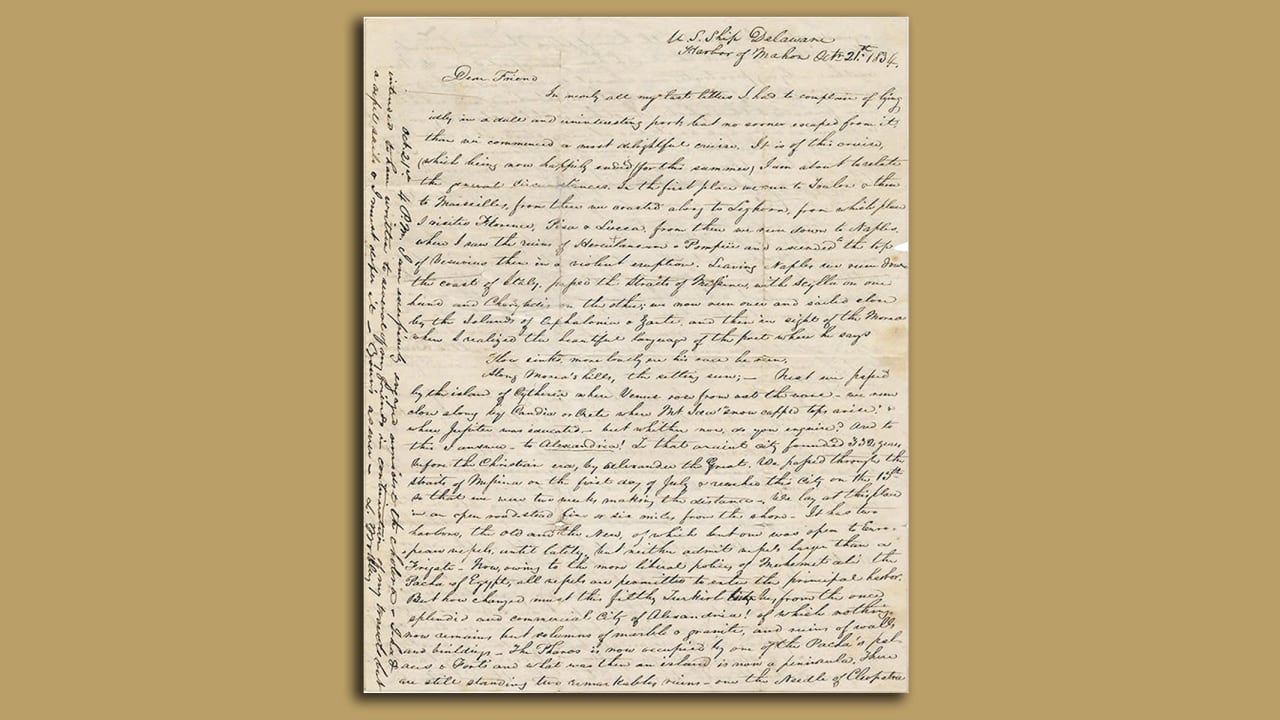 U.S. Ship Delaware
Harbor of Mahon Octr. 21th 1834.
Dear Friend
In nearly all my last letters I had to complain of lying
idly in a dull and uninteresting port, but no sooner escaped from it,
than we commenced a most delightful cruise. It is of this cruise,
(which being now happily ended (for this summer) I am about to relate
the general circumstances. In the first place we run to Toulon & then
to Marseilles, from there we coasted along to Leghorn, from which place
I visited Florence, Pisa & Lucca, from there we run down to Naples,
where I saw the ruins of Herculaneum & Pompeii and ascended the top
of Vesuvius then in a violent eruption. Leaving Naples we run down
the coast of Italy, passed the straits of Messina, with Scylla on one
hand and Charybdis on the other; we now run over and sailed close
by the Islands of Cephalonia & Zante, and then in sight of the Morea
where I realized the beautiful language of the poet where he says
Slow sinks, more lovely ere his race be run,
Along Morea's hills, the setting sun; — Next we passed
by the island of Cytheria where Venus rose from out the wave – we run
close along by Candia or Crete where Mt Ida's snow capped tops arise! &
where Jupiter was educated – but whither now, do you enquire? And to
this I answer – to Alexandria! To that ancient city founded 332 years,
before the Christian era, by Alexander the Great. We passed through the
straits of Messina on the first day of July & reached this City on the 15th
so that we were two weeks making the distance –. We lay at this place
in an open roadstead five or six miles from the shore – It has two
harbors, the old and the New, of which but one was open to Euro-
pean vessels, until lately, but neither admits vessels larger than a
Frigate – Now, owing to the more liberal policy of Mechemet Ali the
Pacha of Egypt, all vessels are permitted to enter the principal harbor.
But how changed must this filthy Turkish be, from the once
splendid and commercial City of Alexandria! of which nothing
now remains but columns of marble & granite, and ruins of walls
and buildings – The Pharos is now occupied by one of the Pacha's pal-
aces & Forts and what was then an island is now a peninsula. There
are still standing two remarkable ruins – one the Needle of Cleopatra
Oct 21st 4 P.M. I am
intended to have written to in continuation of my
a & I must defer it –